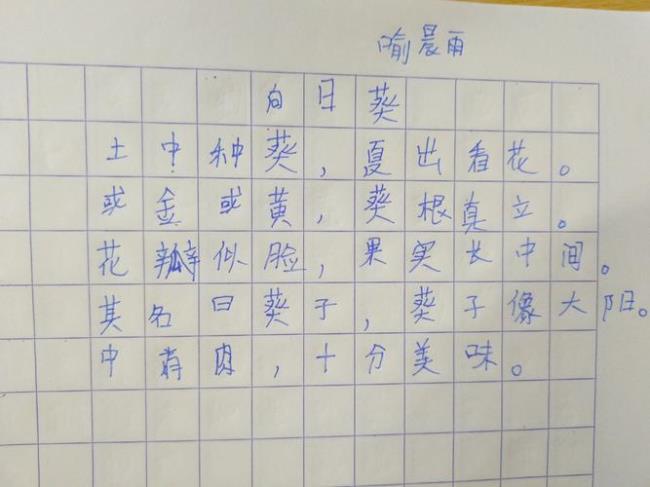 喻晨雨
向日葵
土中种葵,夏出看花。
或金或黄,葵根真立。
花瓣似脸,果实长中间。
其名曰葵子,葵子像大阳。
中有肉,十分美味。